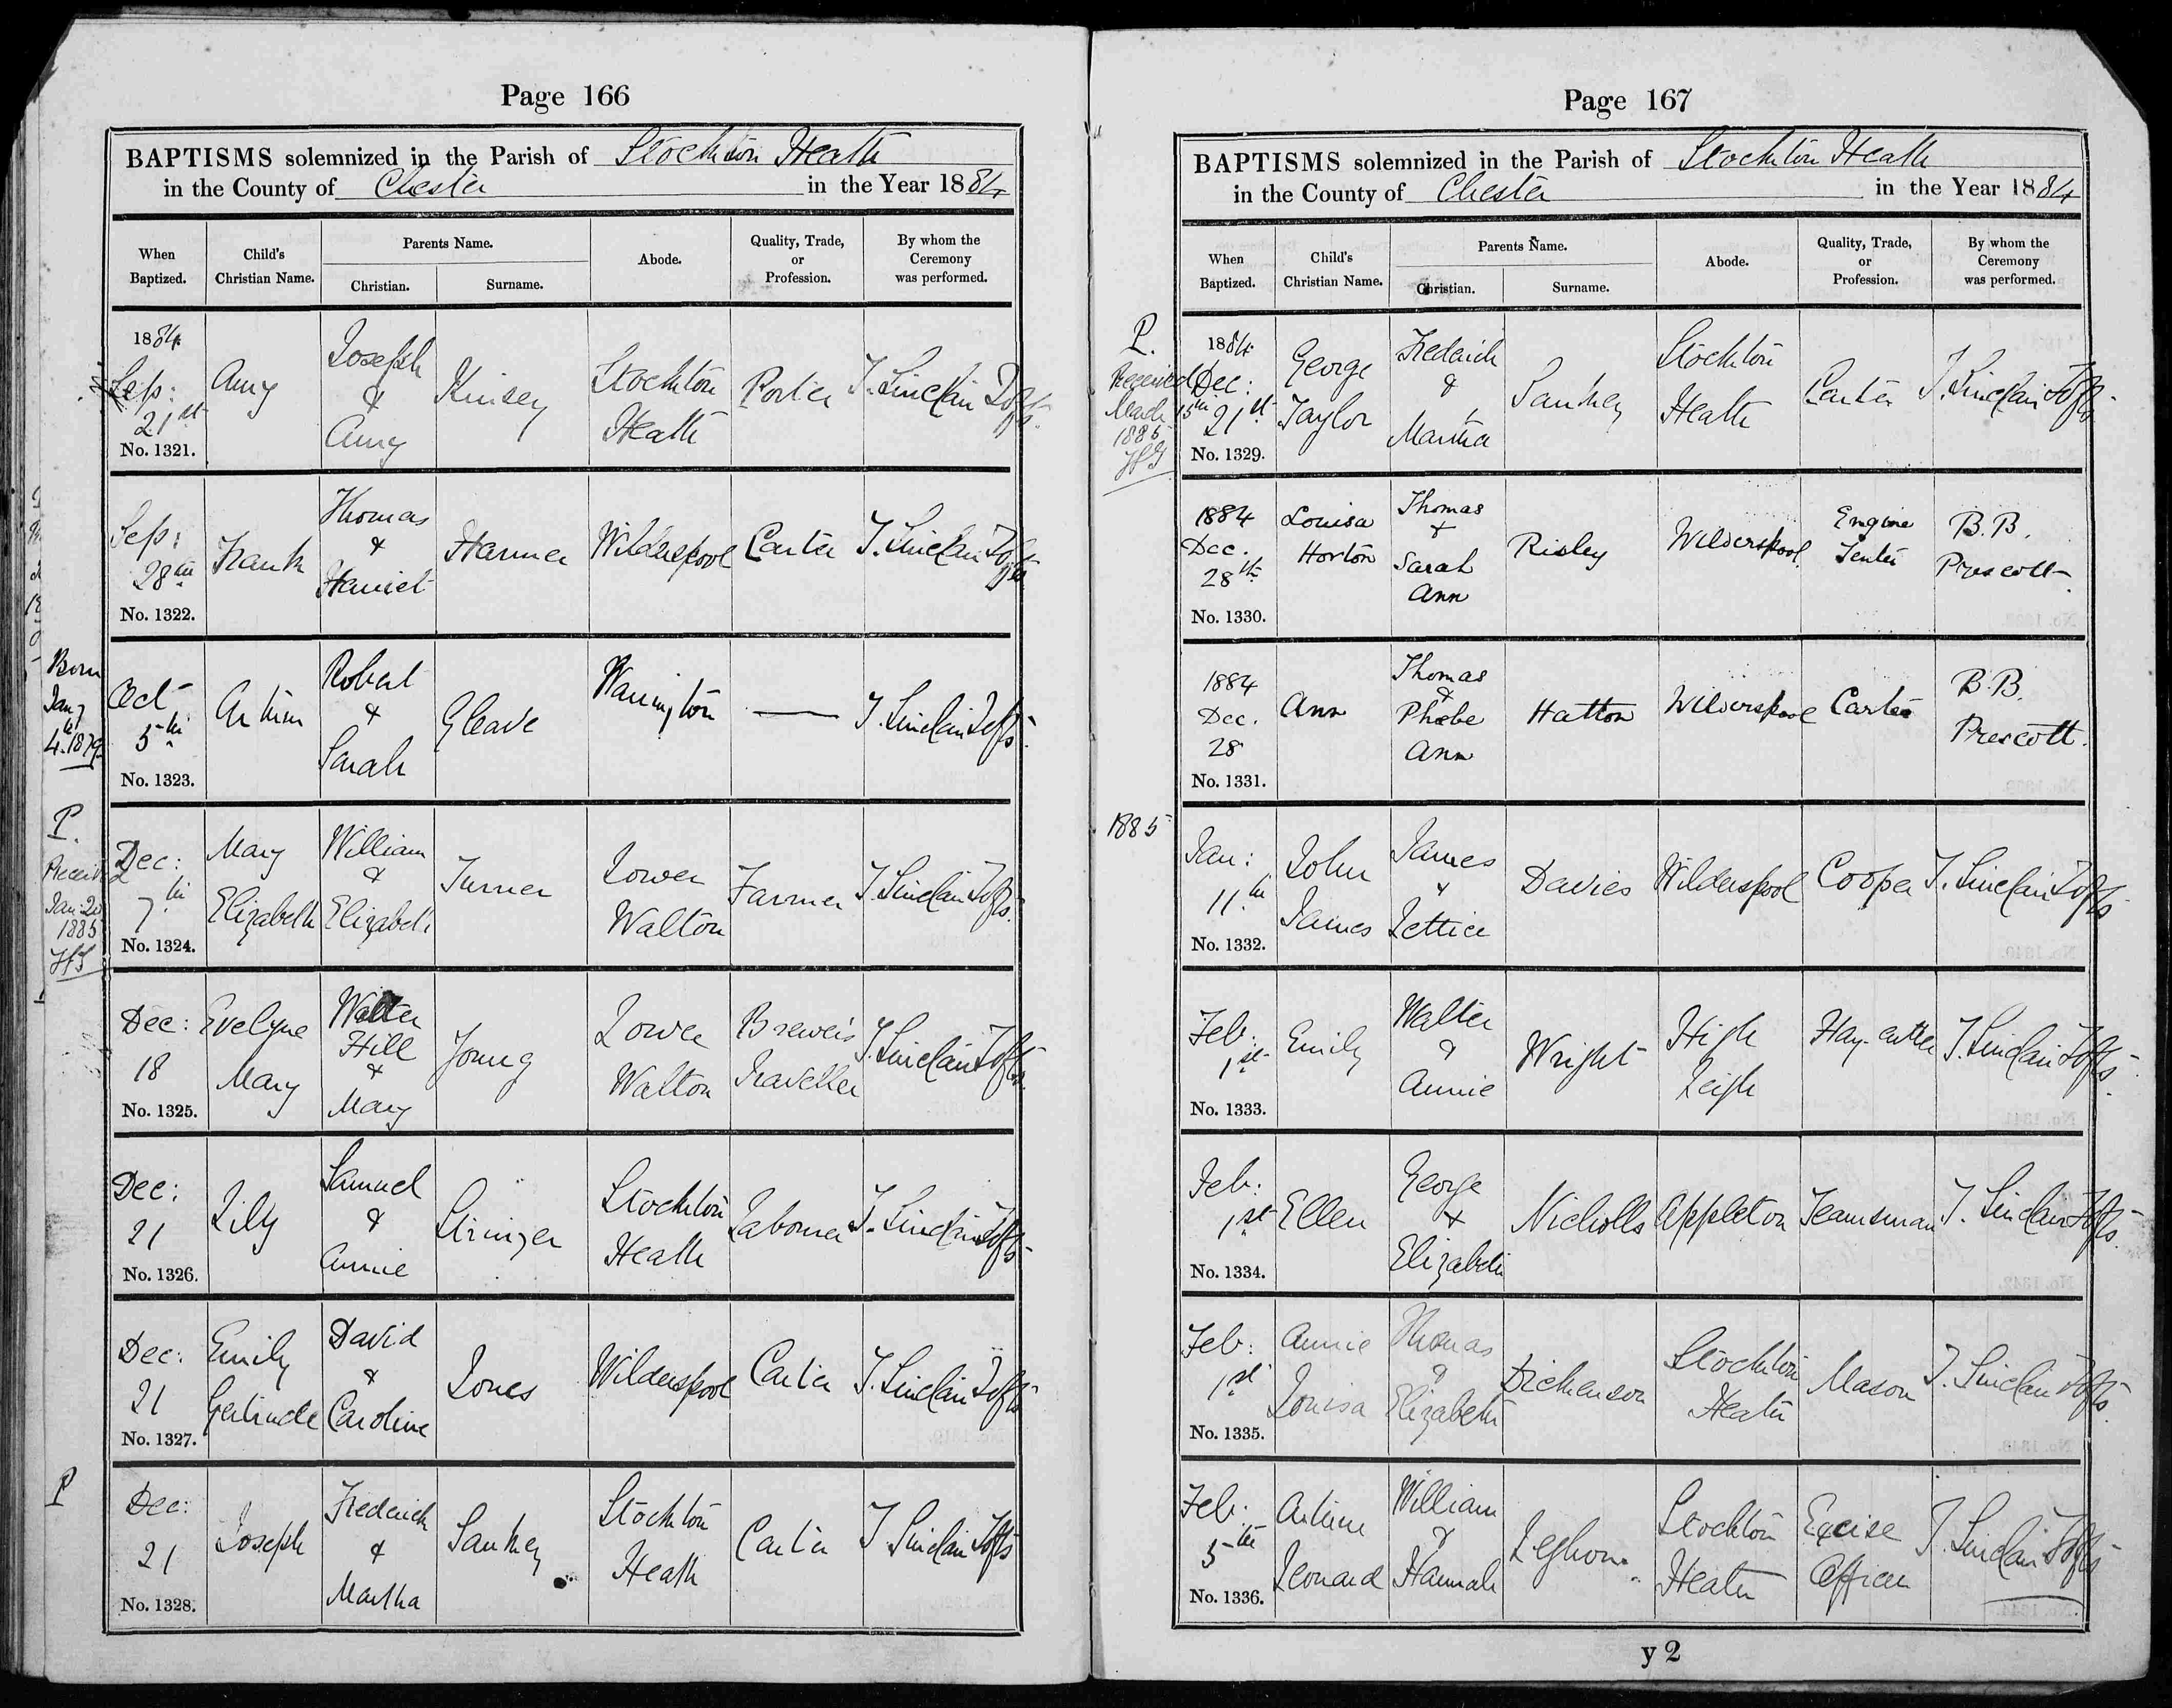 Page 166
BAPTISMS solemnized in the Parish of Stockton Heath
in the County of Chester in the Year 1884
When Baptized.
Child's Christian Name.
Parents Name.
Christian.
Surname.
Abode.
Quality, Trade, or Profession.
By whom the Ceremony was performed.
1884
Sep: 21st
No. 1321.
Amy
Joseph & Amy
Kinsey
Stockton Heath
Porter
J. Sinclair Tofts.
Sep: 28th
No. 1322.
Frank
Thomas & Harriet
Harmer
Wilderspool
Carter
J. Sinclair Tofts.
Born Jany 4th 1879
Oct 5th
No. 1323.
Arthur
Robert & Sarah
Gleave
Warrington
—
J. Sinclair Tofts.
P.
Received Jan: 20 1885
Dec: 7th
No. 1324.
Mary Elizabeth
William & Elizabeth
Turner
Lower Walton
Farmer
J. Sinclair Tofts.
Dec: 18
No. 1325.
Evelyne Mary
Walter Hill & Mary
Young
Lower Walton
Brewer's Traveller
J. Sinclair Tofts.
Dec: 21
No. 1326.
Lily
Samuel & Annie
Stringer
Stockton Heath
Laborer
J. Sinclair Tofts
Dec: 21
No. 1327.
Emily Gertrude
David & Caroline
Jones
Wilderspool
Carter
J. Sinclair Tofts
P
Dec: 21
No. 1328.
Joseph
Frederick & Martha
Sankey
Stockton Heath
Carter
J Sinclair Tofts
Page 167
BAPTISMS solemnized in the Parish of Stockton Heath
in the County of Chester in the Year 1884
When Baptized.
Child's Christian Name.
Parents Name.
Christian.
Surname.
Abode.
Quality, Trade, or Profession.
By whom the Ceremony was performed.
P.
Received March 15th 1885
1884
Dec: 21st
No. 1329.
George Taylor
Frederick & Martha
Sankey
Stockton Heath
Carter
J. Sinclair Tofts
1884 Dec. 28th
No. 1330.
Louisa Horton
Thomas + Sarah Ann
Risley
Wilderspool.
Engine Tenter
B.B. Prescott
1884 Dec. 28
No. 1331.
Ann
Thomas & Phoebe Ann
Hatton
Wilderspool
Carter
B.B. Prescott.
1885
Jan: 11th
No. 1332.
John James
James & Lettice
Davies
Wilderspool
Cooper
J. Sinclair Tofts
Feb: 1st
No. 1333.
Emily
Walter & Annie
Wright
High Leigh
Hay-cutter
J. Sinclair Tofts.
Feb: 1st
No. 1334.
Ellen
George + Elizabeth
Nicholls
Appleton
Teamsman
J. Sinclair Tofts.
Feb: 1st
No. 1335.
Annie Louisa
Thomas & Elizabeth
Dickenson
Stockton Heath
Mason
J. Sinclair Tofts.
Feb: 5th
No. 1336.
Arthur Leonard
William & Hannah
Stockton Heath
Excise Officer
J. Sinclair Tofts
y 2